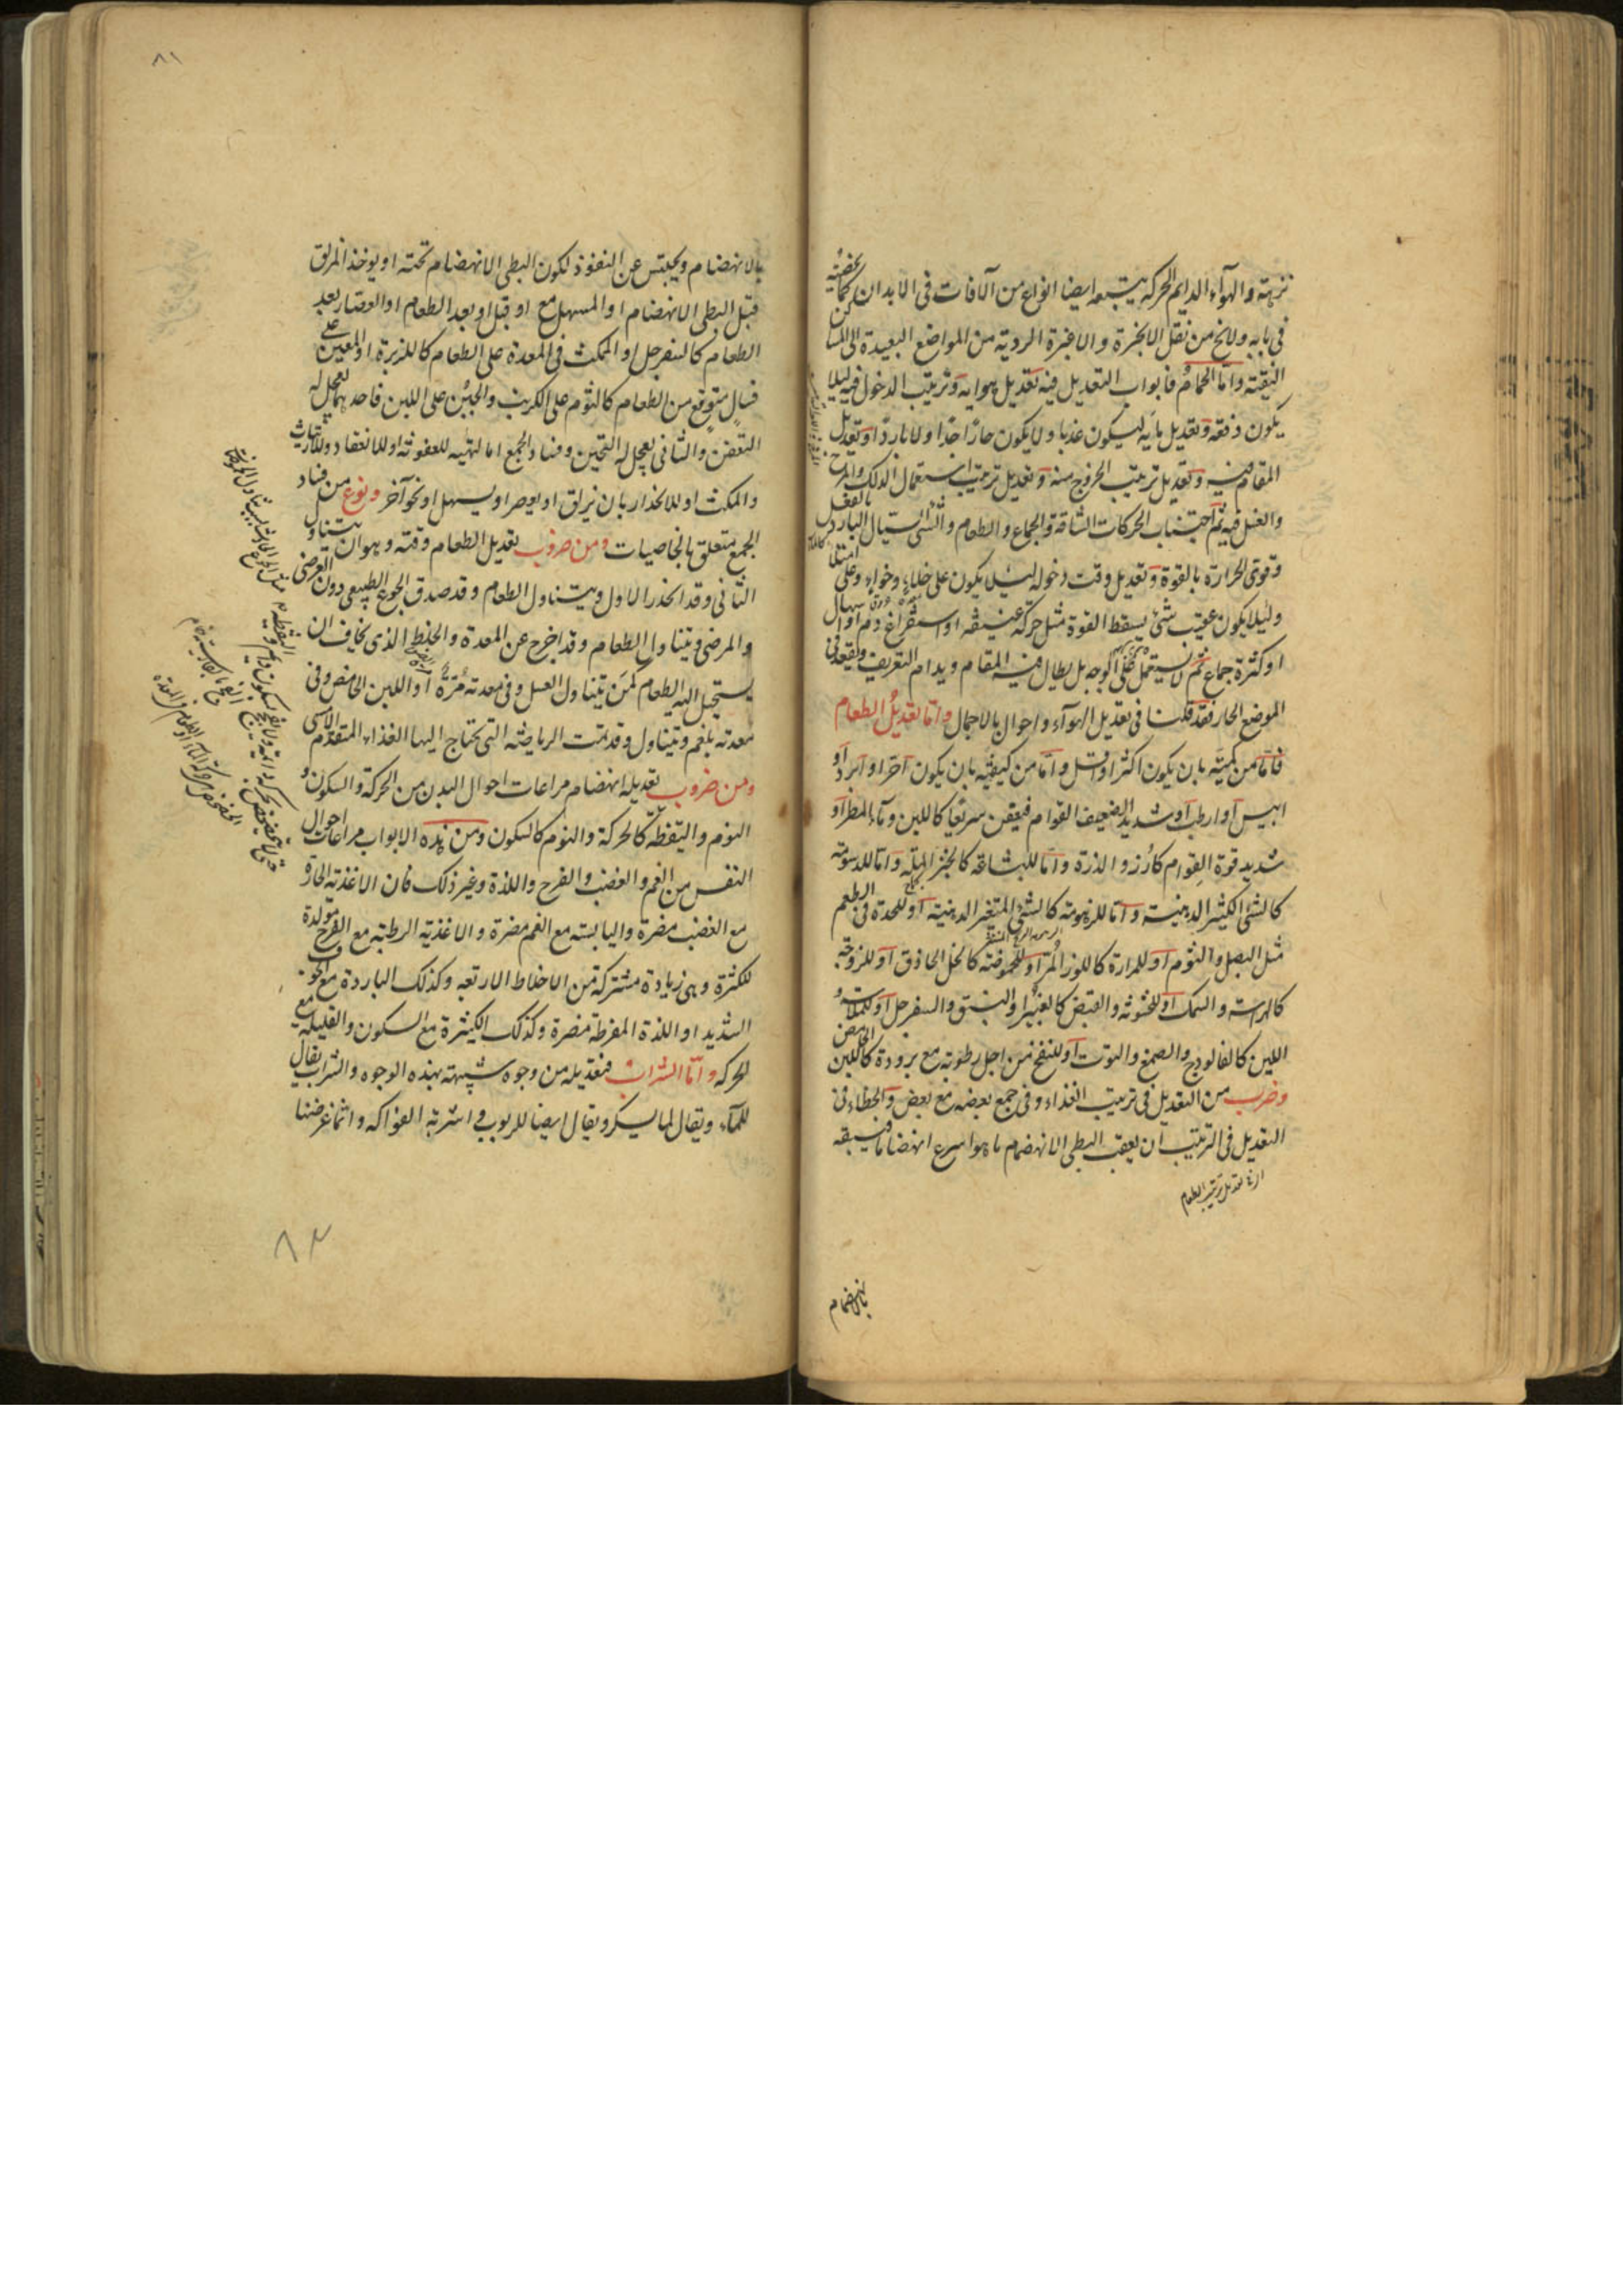 نزهة والهوآء الدايم الحركة يتبعه ايضا انواع من الآفات في الابدان كما
في بابه ولا يخ من نقل الابخرة والاغبرة الردية من المواضع البعيدة الى
النقية واما الحمام فابواب التعديل فيه تعديل هوايه وترتيب الدخول فيه ليلا
يكون دفعة وتعديل مايه ليكون عذبا ولا يكون حارّا جدّا ولا باردّا وتعديل
المقام فيه وتعديل ترتيب الخروج منه وتعديل ترتيب استعمال الدلك والمرخ
والغسل فيه ثم اجتناب الحركات الشاقة والجماع والطعام والشئ السيال البارد بالفعل
وقوى الحرارة بالقوة وتعديل وقت دخوله ليلا يكون على خلاء وخواء وعلى امتلا
وليلا يكون عقيب شئ يسقط القوة مثل حركة عنيفة او استفراغ دم او اسهال
او كثرة جماع ثم لا يستعمل على الوجه بل يطال فيه المقام ويدام التعريق
الموضع الحار فقد قلنا في تعديل الهوآء واحوال بالاجمال واما تعديل الطعام
فاما من كميته بان يكون اكثر او اقل واما من كيفيته بان يكون آحر او آبرد او
ايبس او ارطب او شديد الضعيف القوام فيعفن سريعا كاللبن وماء المطر او
شديد قوة القوام كارز والذرة واما للبشاعة كالخبز الملة واما للدسومة
كالشئ الكثير الدهنية واما للزهومة كالشئ المتغير الدهنية او للحدة في الطعم
مثل البصل والثوم او للمرارة كاللوز المر او للحموضة كالخل الحاذق او للزوجة
كالهراسة والسمك او لخشونة والقبض كالغبيرا والنبق والسفرجل او للملاسة و
اللين كالفالودج والصمغ والتوت او للنفخ من اجل رطوبة مع برودة كاللبن الحامض
وضرب من التعديل في ترتيب الغذاء وفي جمع بعضه مع بعض والخطاء في
التعديل في الترتيب ان يعقب البطى الانهضام ما هو اسرع انهضاما فيسبقه
اى في تعديل ترتيب الطعام
بالانهضام
٨١
بالانهضام ويحتبس عن النفوذ لكون البطى الانهضام تحته او يوخذ المزلق
قبل البطى الانهضام او المسهل مع او قبل او بعد الطعام او العصار بعد
الطعام كالسفرجل او الممكث في المعدة على الطعام كالكزبرة او المعين على
فساد متوقع من الطعام كالثوم على الكرنب والجبن على اللبن فاحدهما يعجل له
التعفن والثاني يعجل له التجبن وفساد الجمع اما لتهيه للعفونة او للانعقاد
والمكث او للانحدار بان يزلق او يعصر او يسهل او نحو آخر ونوع من فساد
الجمع يتعلق بالخاصيات ومن ضروب تعديل الطعام وقته وهو ان يتناول
الثاني وقد انحدر الاول ويتناول الطعام وقد صدق الجوع الطبيعي دون العرضى
والمرضى ويتناول الطعام وقد اخرج عن المعدة والخلط الذي يخاف ان
يستحيل اليه الطعام كمن يتناول العسل وفي معدته مُرّة او اللبن الحامض وفي
معدته بلغم ويتناول وقد تمت الرياضة التي تحتاج اليها الغذاء المتقدم
ومن ضروب تعديله انهضام مراعات احوال البدن من الحركة والسكون و
النوم واليقظة كالحركة والنوم كالسكون ومن هذه الابواب مراعات احوال
النفس من الغم والغضب والفرح واللذة وغير ذلك فان الاغذية الحارة
مع الغضب مضرة واليابسة مع الغم مضرة والاغذية الرطبة مع الفرح مولدة
للكثرة وهي زيادة مشتركة من الاخلاط الاربعة وكذلك الباردة مع الخوف
الشديد او اللذة المفرطة مضرة وكذلك الكثيرة مع السكون والقليلة مع
الحركة واما الشراب فتعديله من وجوه شبيهة بهذه الوجوه والشراب يقال
للماء ويقال لما يسكر ويقال ايضا للربوب في اشربة الفواكه وانما غرضنا
٨٢